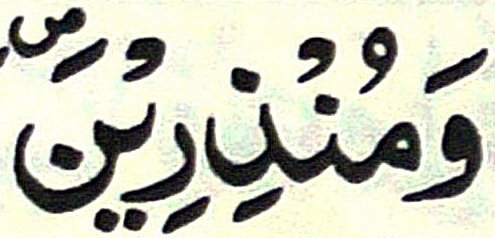 وَمُنْذِرِيْنَ ۪ص